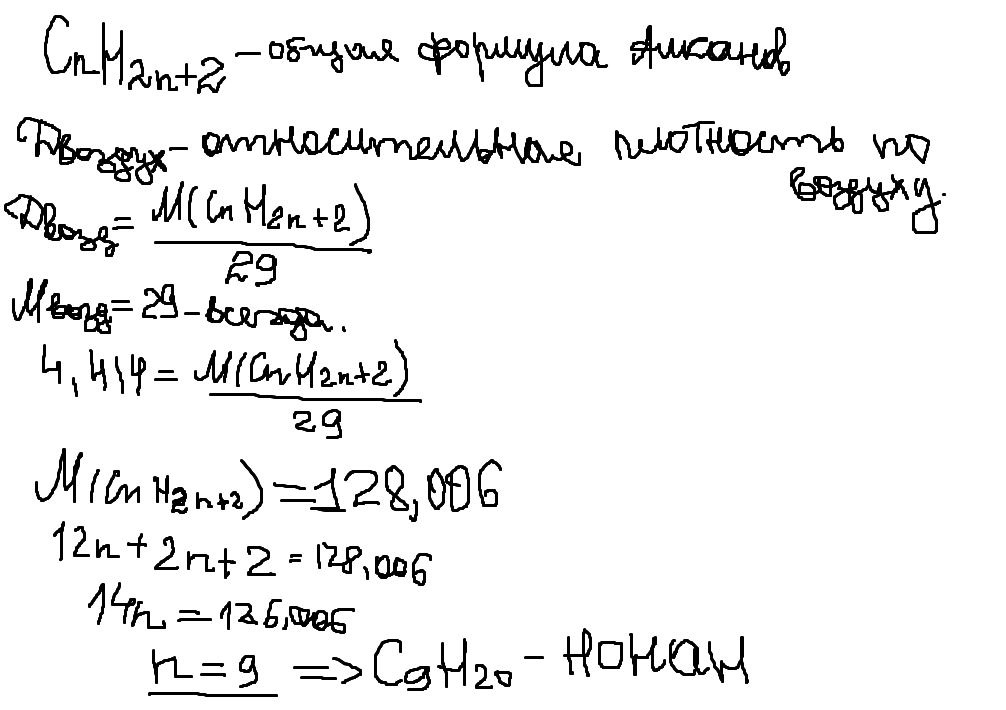 CnH2n+2 - общая формула алканов
Dвоздух - относительная плотность по
воздуху.
Dвозд = M(CnH2n+2)
29
Mвозд = 29 - всегда.
4,414 = M(CnH2n+2)
29
M(CnH2n+2) = 128,006
12n + 2n + 2 = 128,006
14n = 126,006
n = 9 => C9H20 - нонан